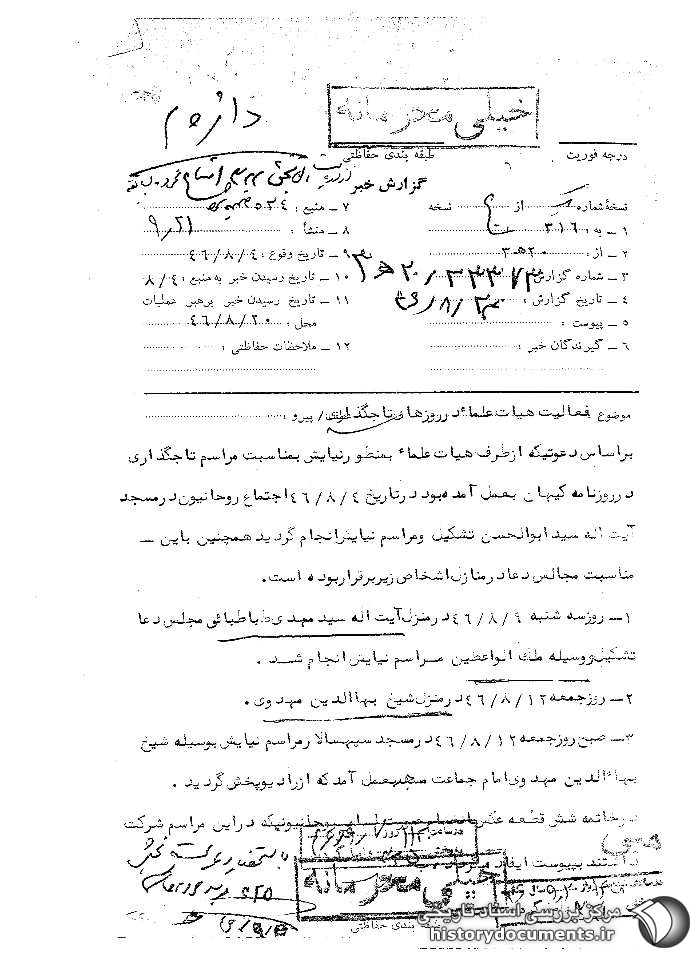 خیلی محرمانه
درجه فوریت
طبقه بندی حفاظتی
گزارش خبر
نسخهٔ شماره از نسخه
۱ ـ به : ۳۱۶
۲ ـ از : ۲۰ ه ۳
۳ ـ شماره گزارش ۲۳۳۷۳ / ۲۰ ه ۳
۴ ـ تاریخ گزارش :
۵ ـ پیوست :
۶ ـ گیرندگان خبر :
۷ ـ منبع : ۵۲۴
۸ ـ منشأ : ۹/۲۱
۹ ـ تاریخ وقوع : ۴۶/۸/۴
۱۰ ـ تاریخ رسیدن خبر به منبع : ۸/۴
۱۱ ـ تاریخ رسیدن خبر برهبر عملیات
محل : ۴۶/۸/۲۰
۱۲ ـ ملاحظات حفاظتی :
موضوع فعالیت هیات علماء در روزهای تاجگذاری / پیرو :
براساس دعوتیکه ازطرف هیات علماء بمنظور نیایش بمناسبت مراسم تاجگذاری
در روزنامه کیهان بعمل آمده بود در تاریخ ۴۶/۸/۴ اجتماع روحانیون در مسجد
آیت اله سید ابوالحسن تشکیل ومراسم نیایش انجام گردید همچنین باین ـ
مناسبت مجالس دعا در منازل اشخاص زیر برقرار بوده است.
۱ـ روز سه شنبه ۴۶/۸/۹ در منزل آیت اله سید مهدی طباطبائی مجلس دعا
تشکیل وبوسیله ملک الواعظین مراسم نیایش انجام شد .
۲ـ روز جمعه ۴۶/۸/۱۲ در منزل شیخ بهاالدین مهدوی .
۳ـ صبح روز جمعه ۴۶/۸/۱۲ در مسجد سپهسالار مراسم نیایش بوسیله شیخ
بهاءالدین مهدوی امام جماعت مسجد بعمل آمد که از رادیو پخش گردید .
در خاتمه شش قطعه عکس روحانیونیکه در این مراسم شرکت
داشتند بپیوست ایفاد
خیلی محرمانه
طبقه بندی حفاظتی
مرکز بررسی اسناد تاریخی
historydocuments.ir